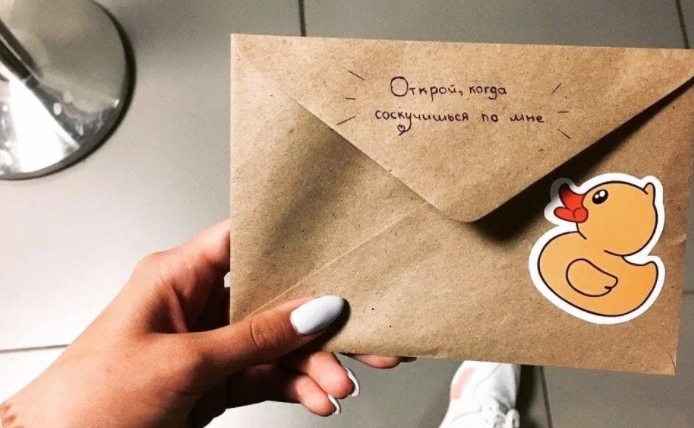 Открой, когда
соскучишься по мне